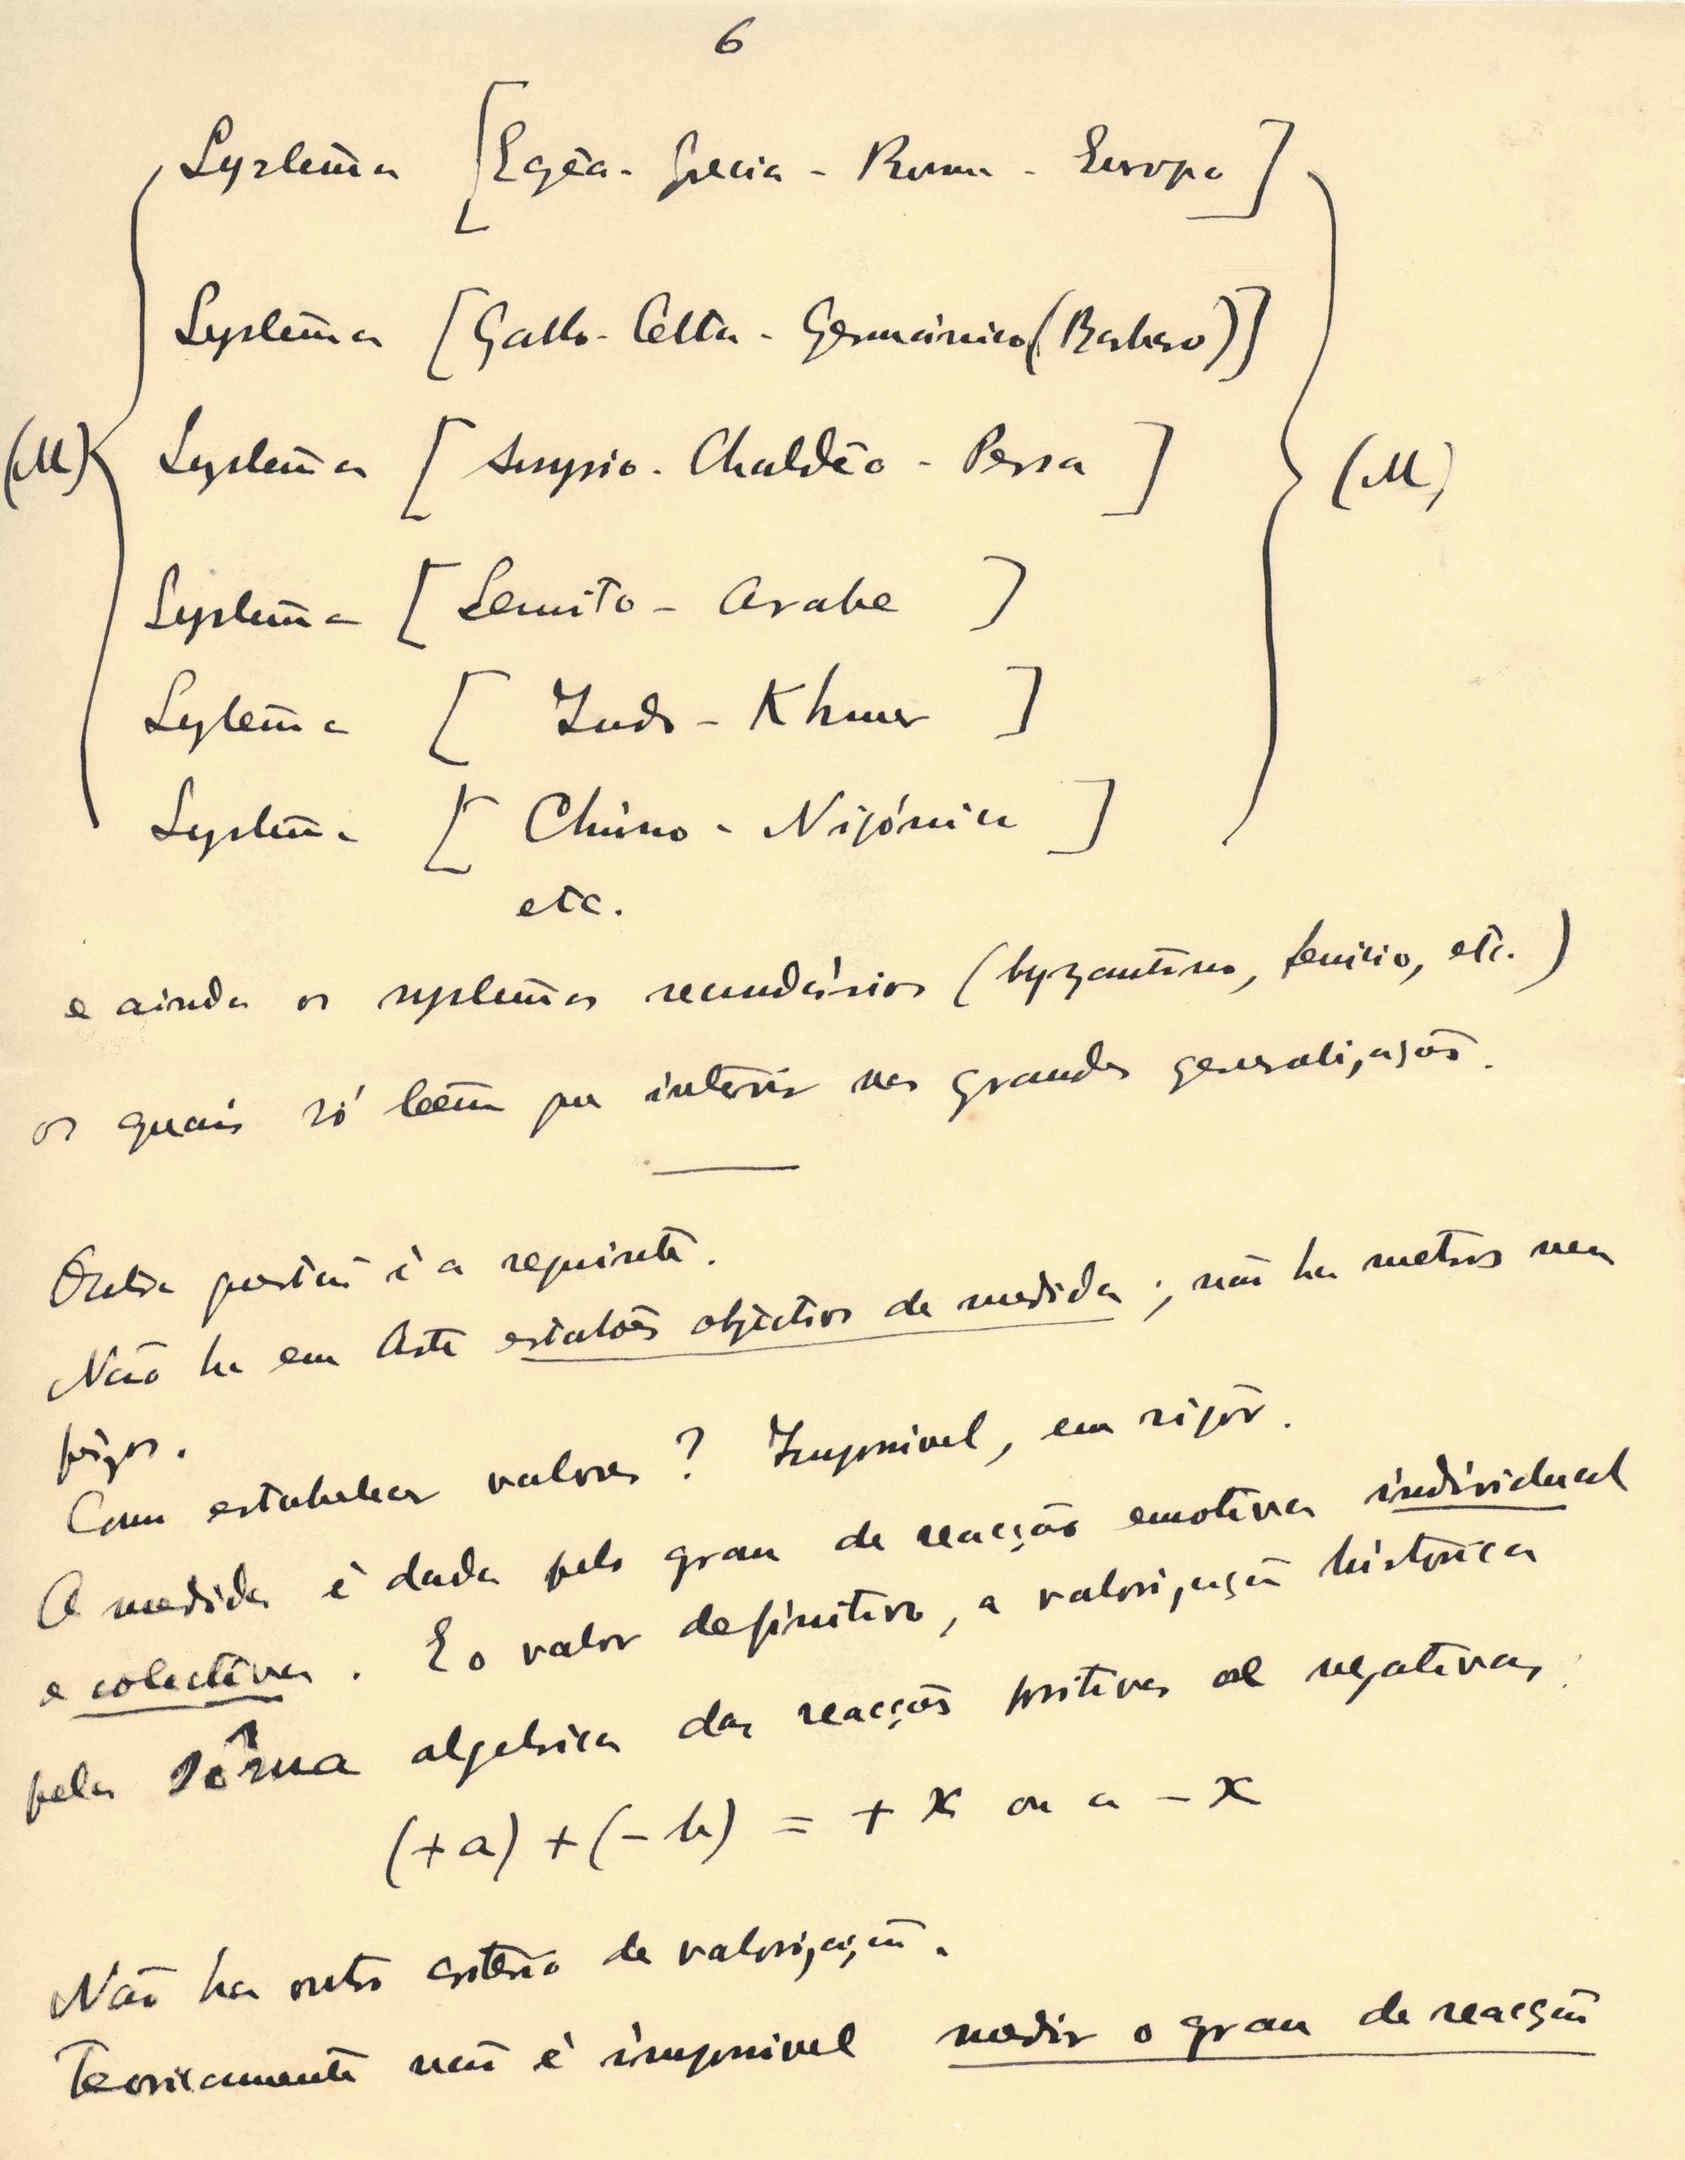 6
Systema [Egêa - Grecia - Roma - Europa]
Systema [Gallo - Celta - Germánico (Barbaro)]
(M) Systema [Assyrio - Chaldêo - Persa] (M)
Systema [Semito - Arabe]
Systema [Indo - Khmer]
Systema [Chino - Nipónica]
etc.
e ainda os systemas secundários (byzantino, fenicio, etc.)
os quais só teem por interir nas grandes generalizações.
Outra questão é a seguinte.
Não ha em Arte estalões objectivos de medida; não ha metros nem
pêzos.
Como estabelecer valores? Impossivel, em rigôr.
A medida é dada pelo grau de reacção emotiva individual
e colectiva. E o valor definitivo, a valorização histórica
pela sôma algebrica das reacções positivas ou negativas:
(+a) + (-b) = + x ou a - x
Não ha outro critério de valorização.
Teoricamente não é impossivel medir o grau de reacção